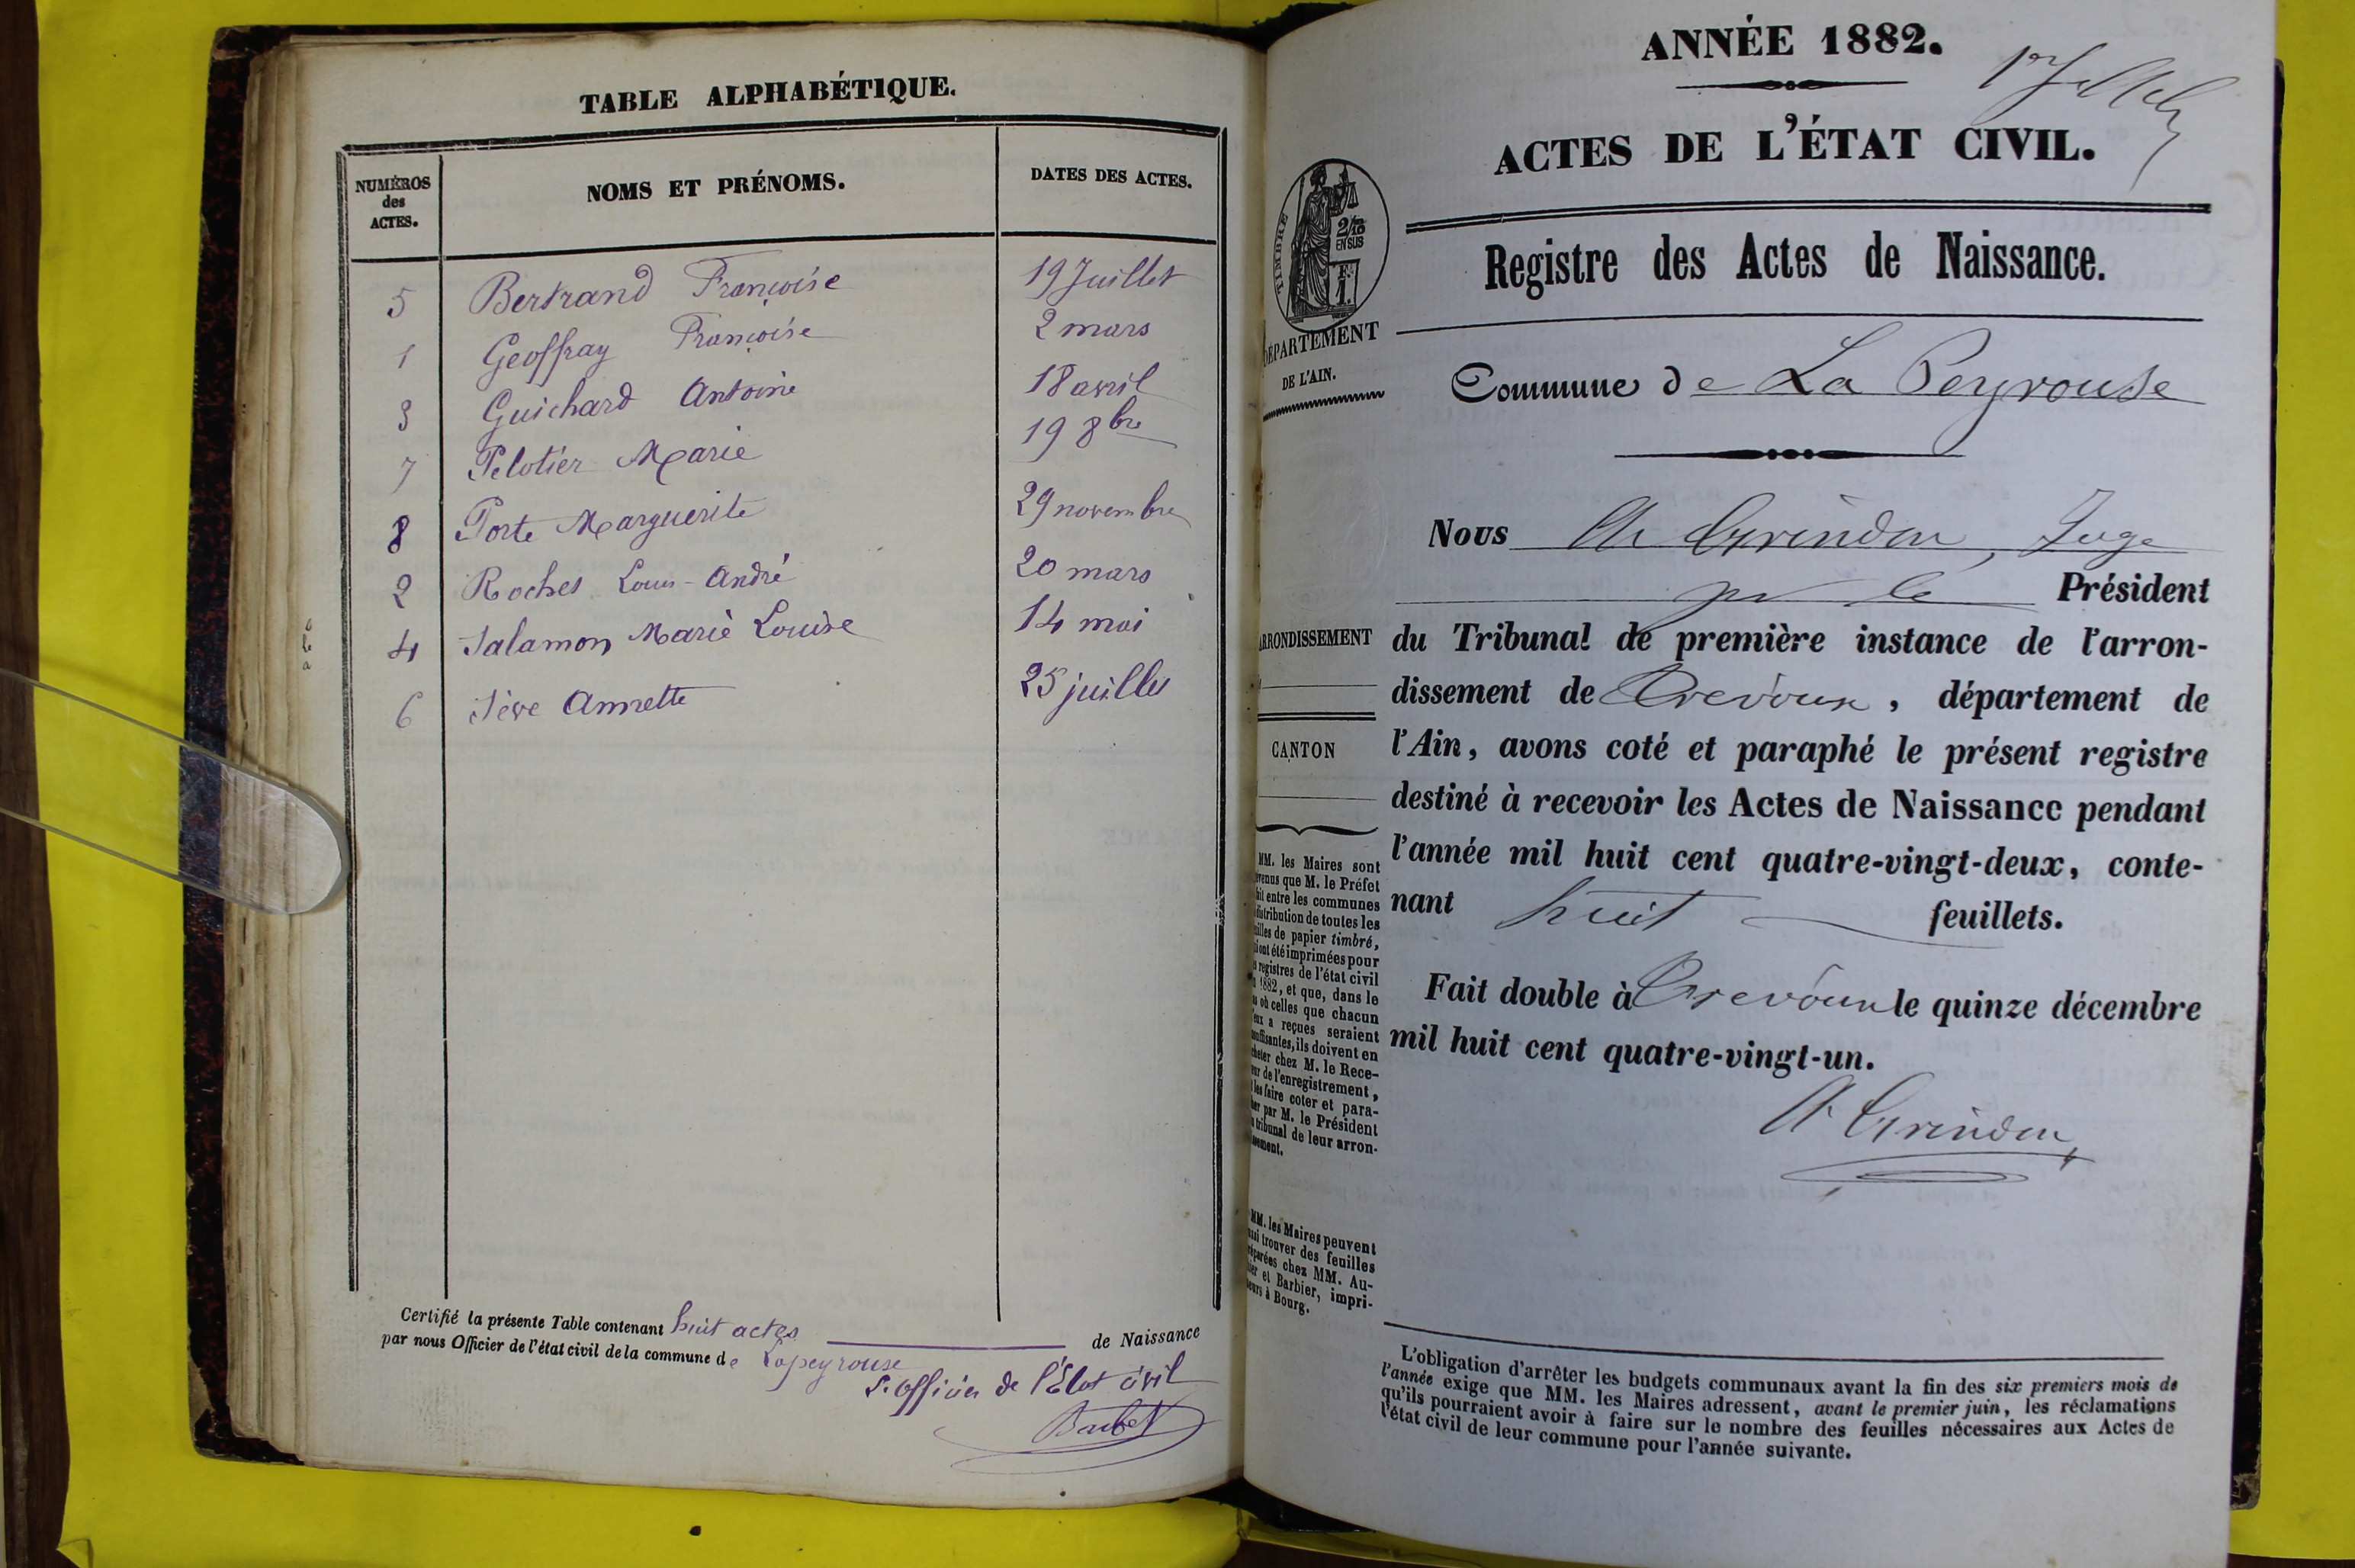 TABLE ALPHABÉTIQUE.
NUMÉROS
des
ACTES.
NOMS ET PRÉNOMS.
DATES DES ACTES.
5 Bertrand Françoise 19 Juillet
1 Geoffray Françoise 2 mars
3 Guichard Antoine 18 avril
7 Pelotier Marie 19 8bre
8 Porte Marguerite 29 novembre
2 Roches Louis-André 20 mars
4 Salamon Marie Louise 14 mai
6 Sève Annette 25 juillet
Certifié la présente Table contenant huit actes de Naissance
par nous Officier de l'état civil de la commune de Lapeyrouse
L'officier de l'État civil
Barbet
ANNÉE 1882.
ACTES DE L'ÉTAT CIVIL.
TIMBRE
2/10
EN SUS
DÉPARTEMENT
DE L'AIN.
Registre des Actes de Naissance.
Commune de La Peyrouse
Nous Grindon, Juge
pr le Président
ARRONDISSEMENT
du Tribunal de première instance de l'arron-
dissement de Trevoux, département de
CANTON
l'Ain, avons coté et paraphé le présent registre
destiné à recevoir les Actes de Naissance pendant
l'année mil huit cent quatre-vingt-deux, conte-
nant huit feuillets.
Fait double à Trevoux le quinze décembre
mil huit cent quatre-vingt-un.
Grindon
MM. les Maires sont
que M. le Préfet
fait entre les communes
distribution de toutes les
feuilles de papier timbré,
ont été imprimées pour
registres de l'état civil
1882, et que, dans le
où celles que chacun
a reçues seraient
ils doivent en
chez M. le Rece-
de l'enregistrement,
les faire coter et para-
par M. le Président
tribunal de leur arron-
MM. les Maires peuvent
trouver des feuilles
chez MM. Au-
et Barbier, impri-
à Bourg.
L'obligation d'arrêter les budgets communaux avant la fin des six premiers mois de
l'année exige que MM. les Maires adressent, avant le premier juin, les réclamations
qu'ils pourraient avoir à faire sur le nombre des feuilles nécessaires aux Actes de
l'état civil de leur commune pour l'année suivante.